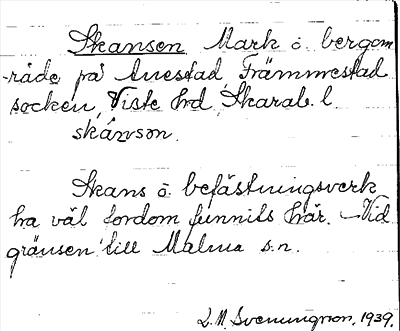 Skansen Mark o. bergom-
råde på Anestad, Främmestad
socken, Viste hrd, Skarab. l.
skánson.
Skans o befästningsverk
ha väl fordom funnits här. – Vid
gränsen till Malma sn.
L. M. Svenungsson, 1939.